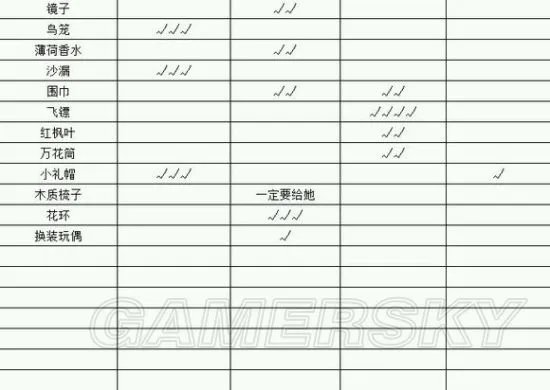 镜子 √√
鸟笼 √√√
薄荷香水 √√
沙漏 √√√
围巾 √√ √√
飞镖 √√√√
红枫叶 √√
万花筒 √√
小礼帽 √√√ √
木质梳子 一定要给她
花环 √√√
换装玩偶 √
GAMERSKY